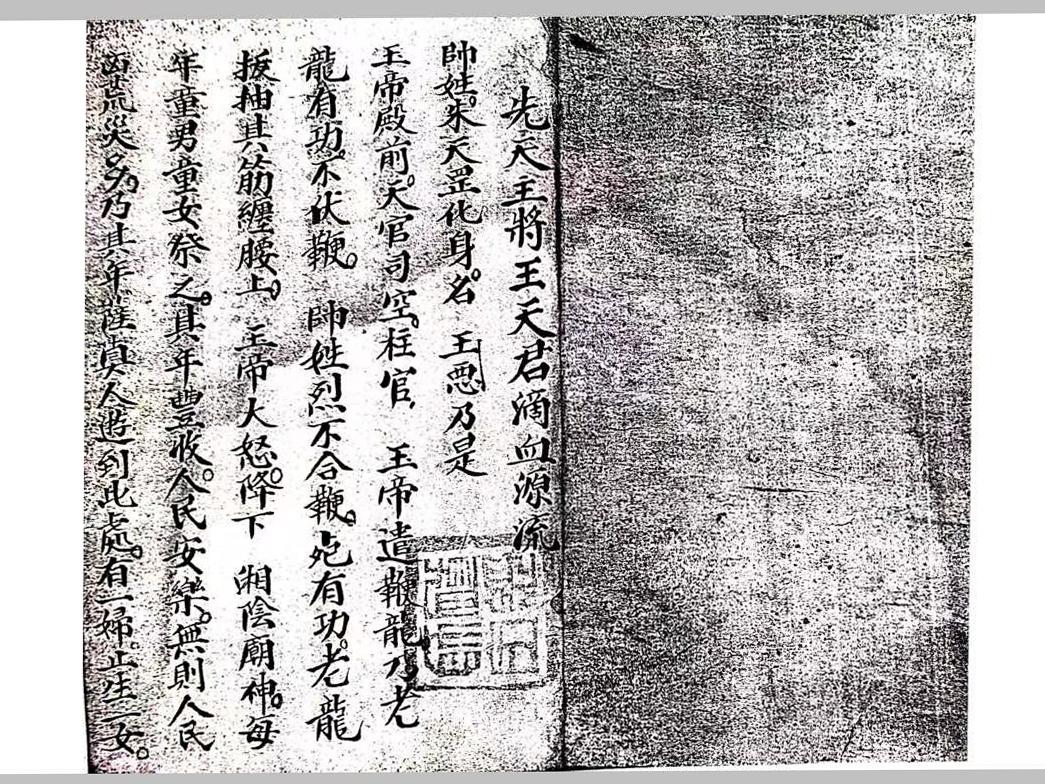 先天主將王天君滴血源流
帥姓。朱天罡化身。名 王惡乃是
玉帝殿前。天官司空。柱官 玉帝遣鞭龍乃老
龍有功。不伏鞭。 帥姓烈不合鞭。有功。老龍
扳抽其筋纏腰上。 玉帝大怒。降下 湘陰廟神。每
年童男童女祭之。其年豐收。人民安樂。無則人民
荒災多。乃其年。薩真人遊到此處。有一婦。止生一女。